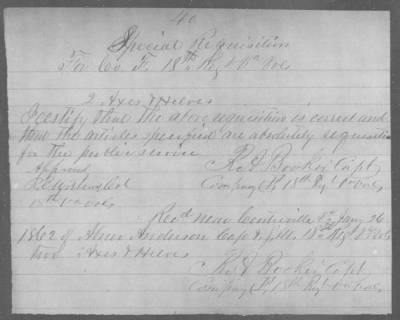 40
Special Requisition
For Co. F. 18th Regt Va Vols
2 Axes & Helves
I certify that the above requisition is correct and
that the articles specified are absolutely requisite
for the public service
R. A. Booker Capt
Company 18th Regt Va Vols
18th Va Vols
Recd near Centreville Va Jany 26
1862 of Abner Anderson Capt & 18th Regt Va Vols
two Axes & Helves
R. A. Booker Capt
Company 18th Regt Va Vols